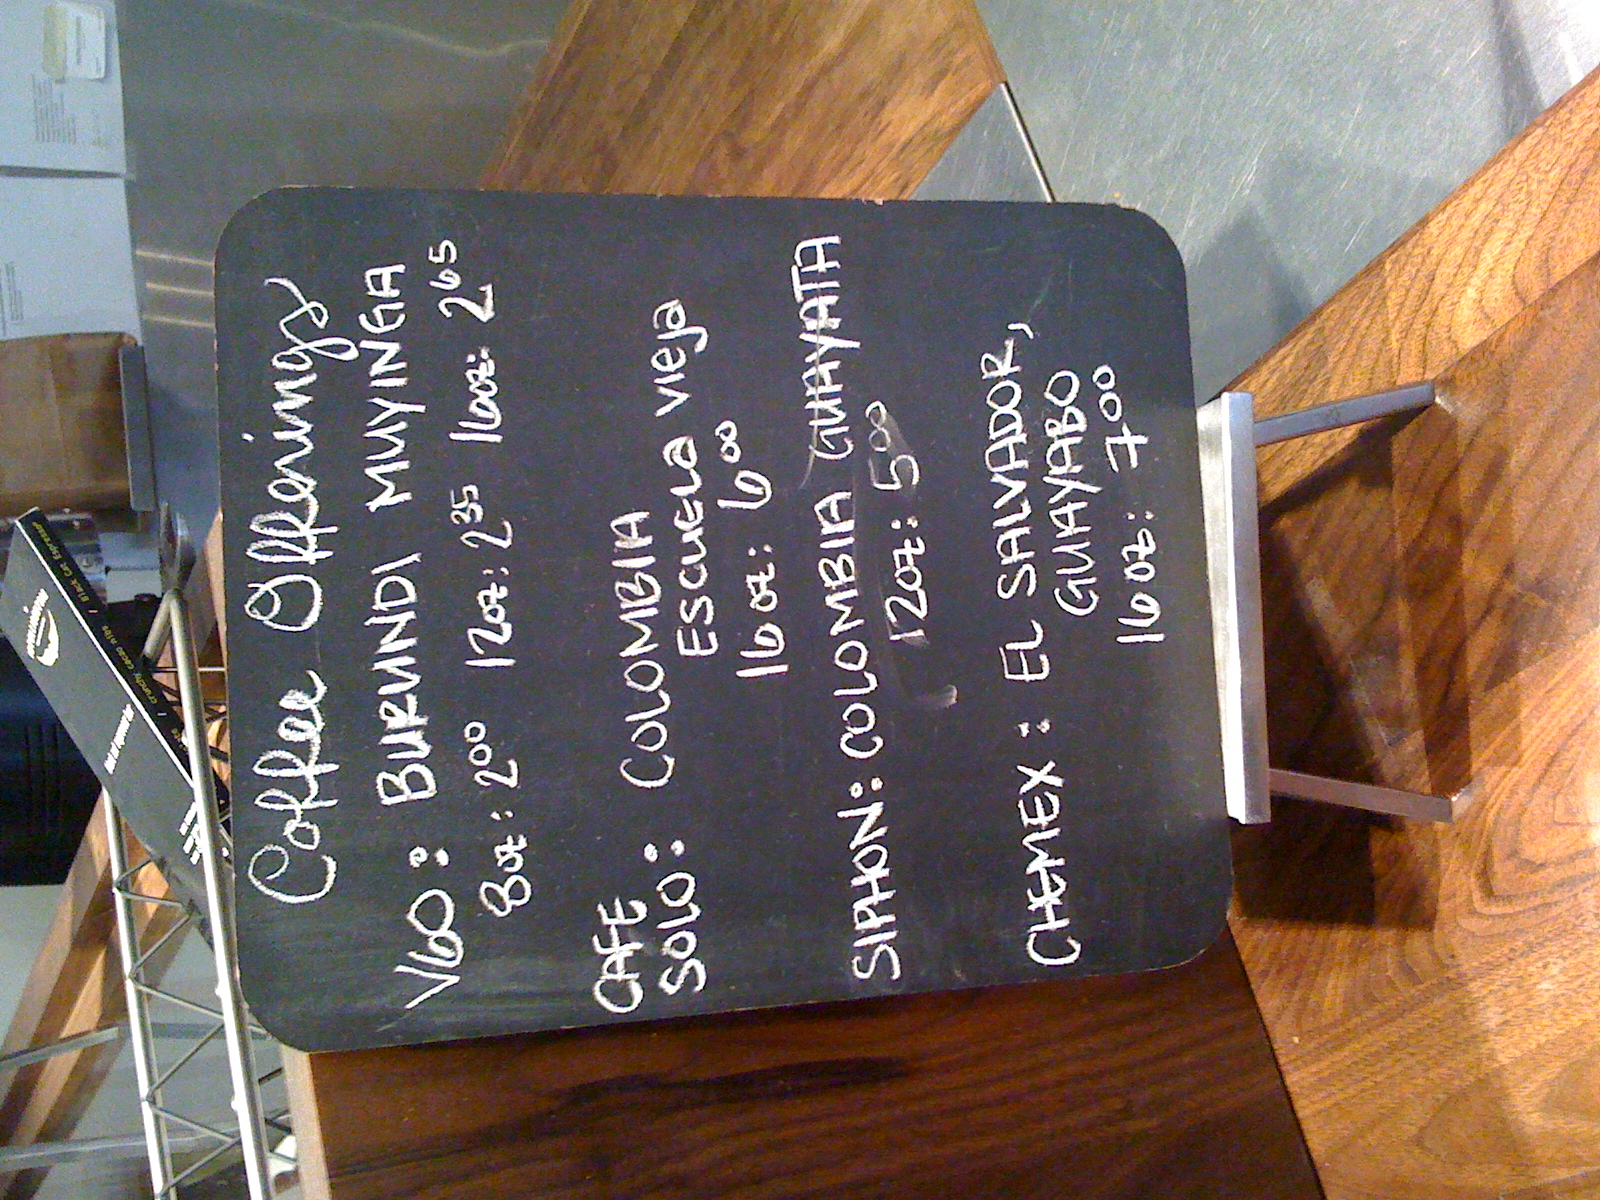 Coffee Offerings
V60: BURUNDI MUYINGA
8oz: 2.00 12oz: 2.35 16oz: 2.65
CAFE
SOLO: COLOMBIA
ESCUELA VIEJA
16 oz: 6.00
SIPHON: COLOMBIA GUAYATA
12oz: 5.00
CHEMEX: EL SALVADOR,
GUAYABO
16 oz: 7.00
/ crunchy cacao nibs / Black Cat Espresso